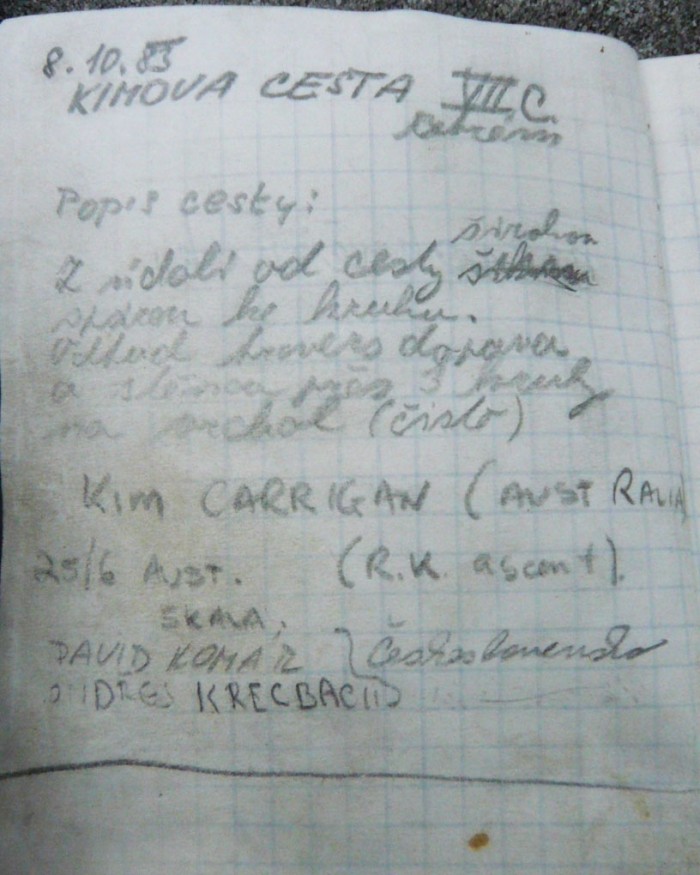 8.10.83
KIMOVA CESTA VIIC
Popis cesty:
širokou
Z údolí od cesty
spárou ke kruhu.
Odtud travers doprava
a stěnou přes 3 kruhy
na vrchol (čisto)
KIM CARRIGAN (AUSTRALIA
25/6 AUST. (R.K. ascent).
SKALA;
DAVID KOMAR } Československo
ONDŘEJ KRECBACH